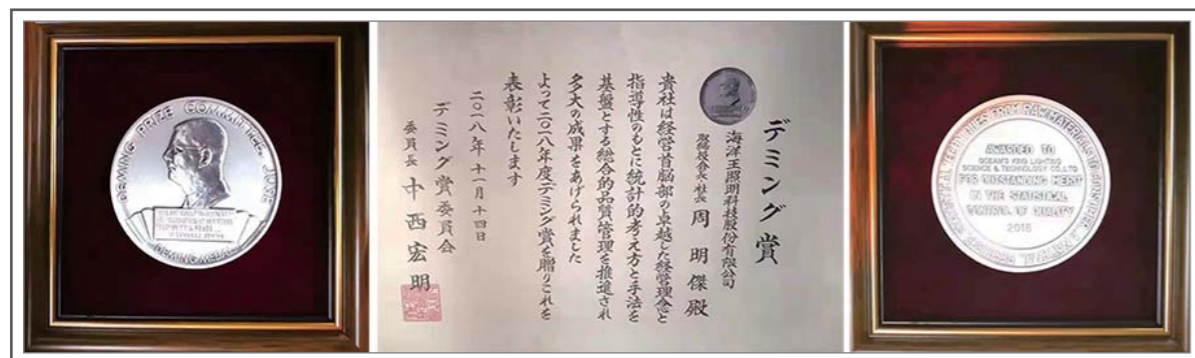 DEMING PRIZE COMMITTEE JUSE
DEMING MEDAL
デミング賞
海洋王照明科技股份有限公司
取締役会長・社長 周明傑殿
貴社は経営首脳部の卓越した経営理念と
指導性のもとに統計的考え方と手法を
基盤とする総合的品質管理を推進され
多大の成果をあげられました
よって二〇一八年度デミング賞を贈りこれを
表彰いたします
二〇一八年十一月十四日
デミング賞委員会
委員長 中西宏明
AWARDED TO
OCEAN'S KING LIGHTING
SCIENCE & TECHNOLOGY CO.,LTD
FOR OUTSTANDING MERIT
IN THE STATISTICAL
CONTROL OF QUALITY
2018